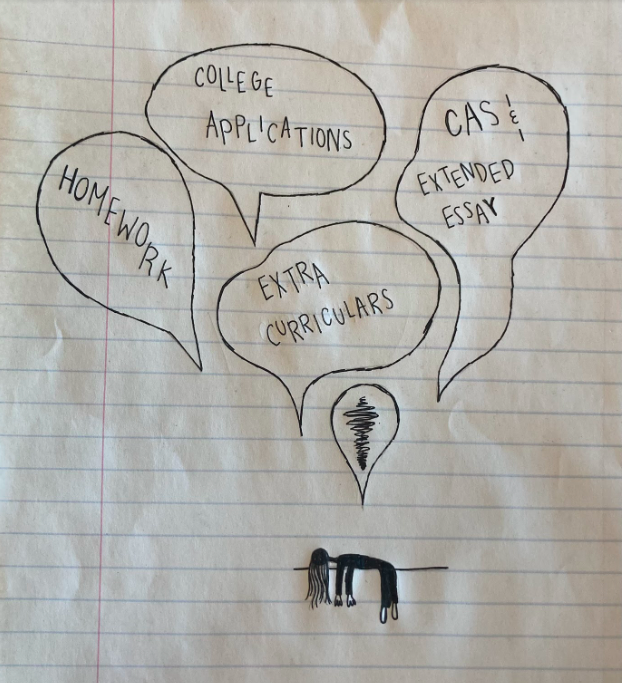 COLLEGE
APPLICATIONS
CAS &
EXTENDED
ESSAY
HOMEWORK
EXTRA
CURRICULARS